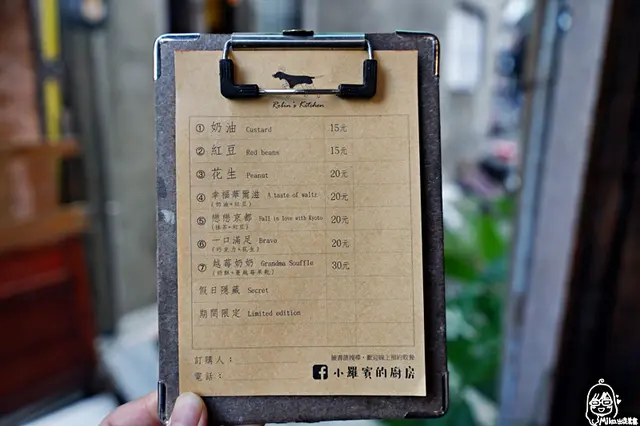 Robin's Kitchen
① 奶油 Custard 15元
② 紅豆 Red beans 15元
③ 花生 Peanut 20元
④ 幸福華爾滋 A taste of waltz 20元
(奶油+紅豆)
⑤ 戀戀京都 Fall in love with Kyoto 20元
(抹茶+紅豆)
⑥ 一口滿足 Bravo 20元
(巧克力+花生)
⑦ 越莓奶奶 Grandma Souffle 30元
假日隱藏 Secret
期間限定 Limited edition
訂購人：
電話：
臉書請搜尋，歡迎線上預約取餐
小羅賓的廚房